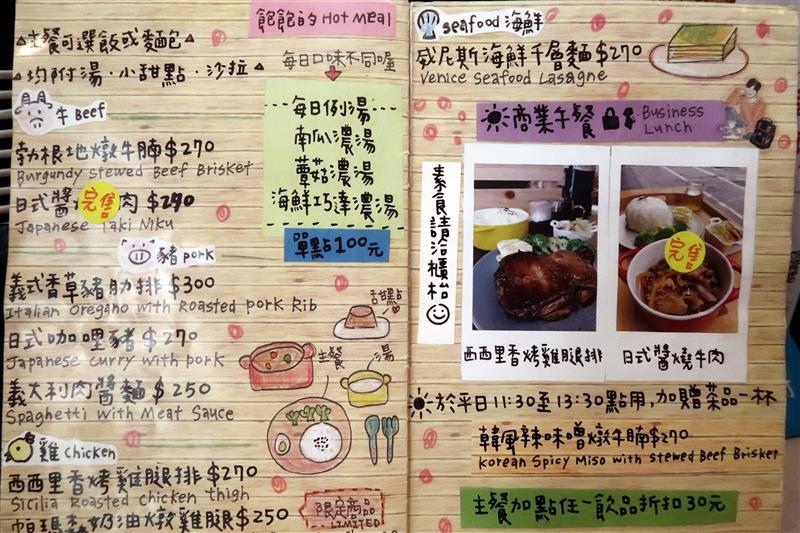 飽飽的 Hot Meal
△主餐可選飯或麵包
△均附湯·小甜點·沙拉△
每日口味不同喔
牛 Beef
勃根地燉牛腩$270
Burgundy stewed Beef Brisket
日式醬 完售 肉 $290
Japanese Yaki Niku
豬 pork
義式香草豬肋排 $300
Italian Oregano with Roasted pork Rib
日式咖哩豬 $270
Japanese curry with pork
義大利肉醬麵 $250
Spaghetti with Meat Sauce
雞 chicken
西西里香烤雞腿排 $270
Sicilia Roasted chicken thigh
帕瑪森奶油燉雞腿 $250
每日例湯
南瓜濃湯
蘑菇濃湯
海鮮巧達濃湯
單點100元
甜點
主餐
湯
限定商品
LIMITED
seafood 海鮮
威尼斯海鮮千層麵 $270
Venice Seafood Lasagne
商業午餐 Business
Lunch
素食請洽櫃枱
完售
西西里香烤雞腿排
日式醬燒牛肉
於平日11:30至13:30點用,加贈茶品一杯
韓風辣味噌燉牛腩$270
Korean Spicy Miso with stewed Beef Brisket
主餐加點任一飲品折扣30元